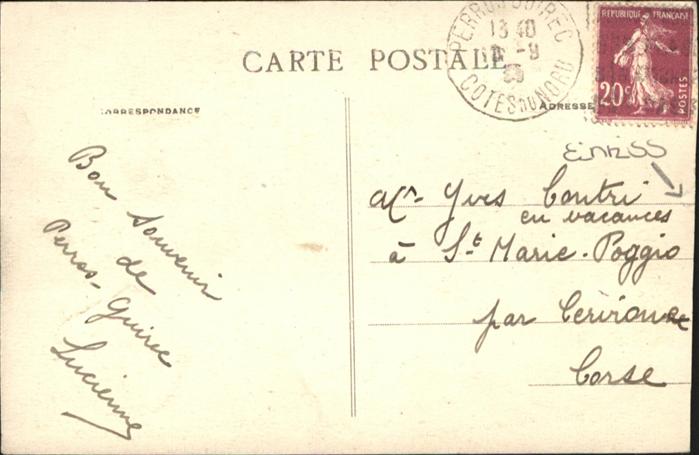 CARTE POSTALE
PERROS-GUIREC
13 40
COTES DU NORD
REPUBLIQUE FRANÇAISE
20c
POSTES
CORRESPONDANCE
ADRESSE
Bon Souvenir
de
Perros-Guirec
Lucienne
Mr Yves Contri
en vacances
à St Marie-Poggio
par Cervione
Corse